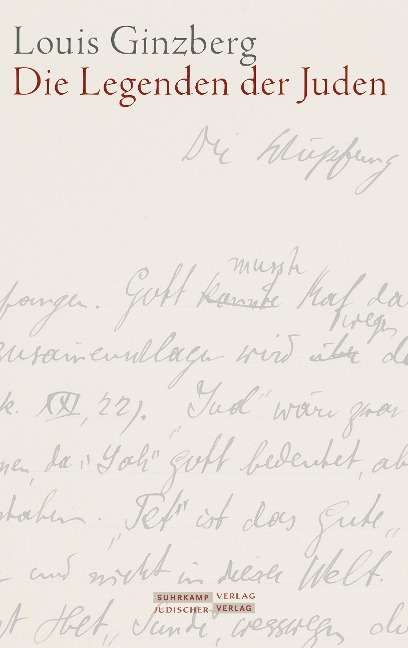 Louis Ginzberg
Die Legenden der Juden
Die Schöpfung
musste
fangen. Gott konnte Kaf da
wegen
wird
XXI, 22). „Jud" wäre zwar
nen, da „Jah" Gott bedeutet, ab
staben. „Tet" ist das Gute,
und nicht in dieser Welt.
SUHRKAMP VERLAG
JÜDISCHER VERLAG
st Het, Sünde, weswegen